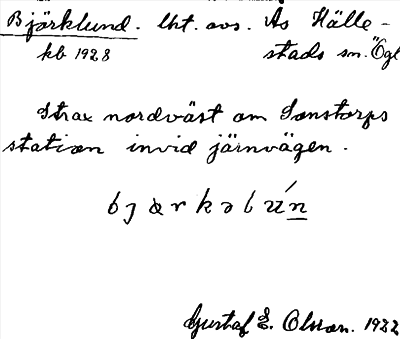 Björklund. lht. avs. As Hälle-
kb 1928 stads sn. Ögl
Strax nordväst om Sonstorps
station invid järnvägen.
Gustaf E. Olsson. 1922